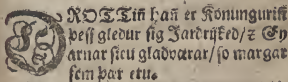 DROTTiñ hañ er Konunguriñ
þesi gledur sig Jardrijked/ z Ey
arnar sieu gladværar/ so margar
sem þær eru.